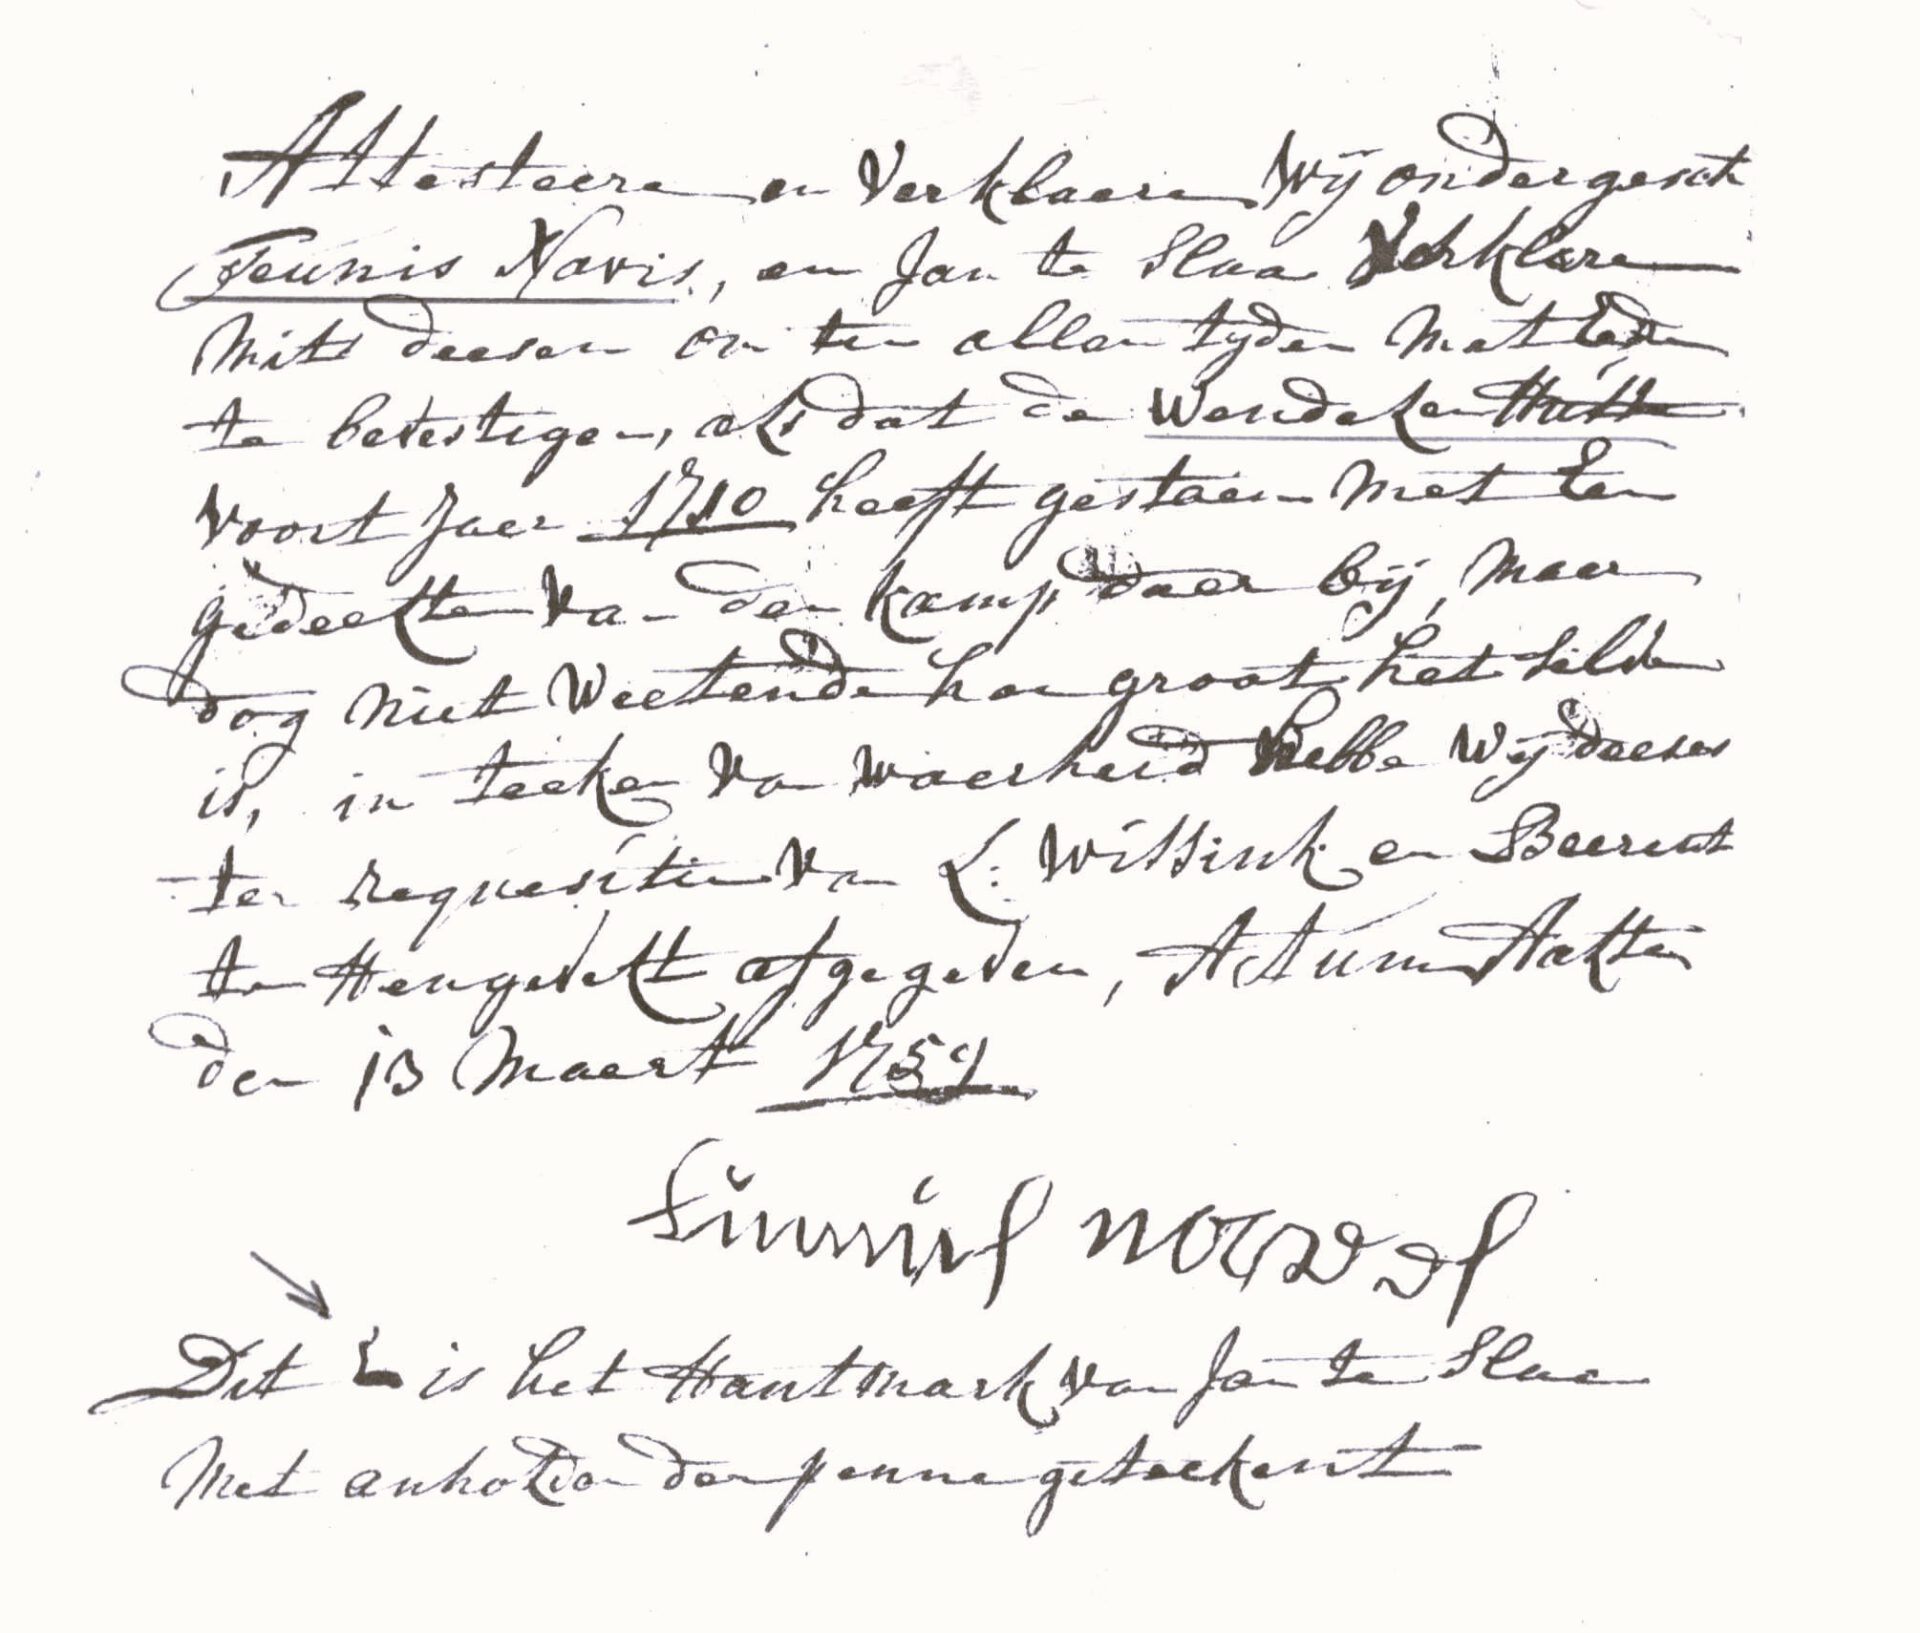 Attesteere en Verklaere Wij ondergesch
Teunis Navis, en Jan te Slaa Verklare
Mits deesen om ten allen tyden Met Ede
te bevestigen, als dat de Wendeken Hutte
Voort Jaer 1710 heeft gestaen Met Een
gedeelte Van den kamp daer bij, Maer
dog Niet Weetende hoe groot het selve
is, in teeken Van Waerheid Hebbe Wij deeses
ter requesitie Van L: Wissink en Beerent
te Hengevelt afgegeven, Actum Aalten
den 13 Maert 1759
Dit is het Hantmark van Jan te Slaa
Met anholden der penne geteekent